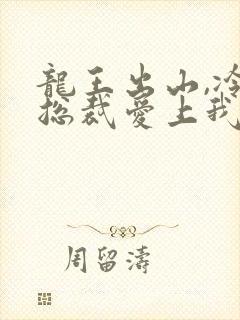 龍王出山,冷
總裁愛上我
周留濤